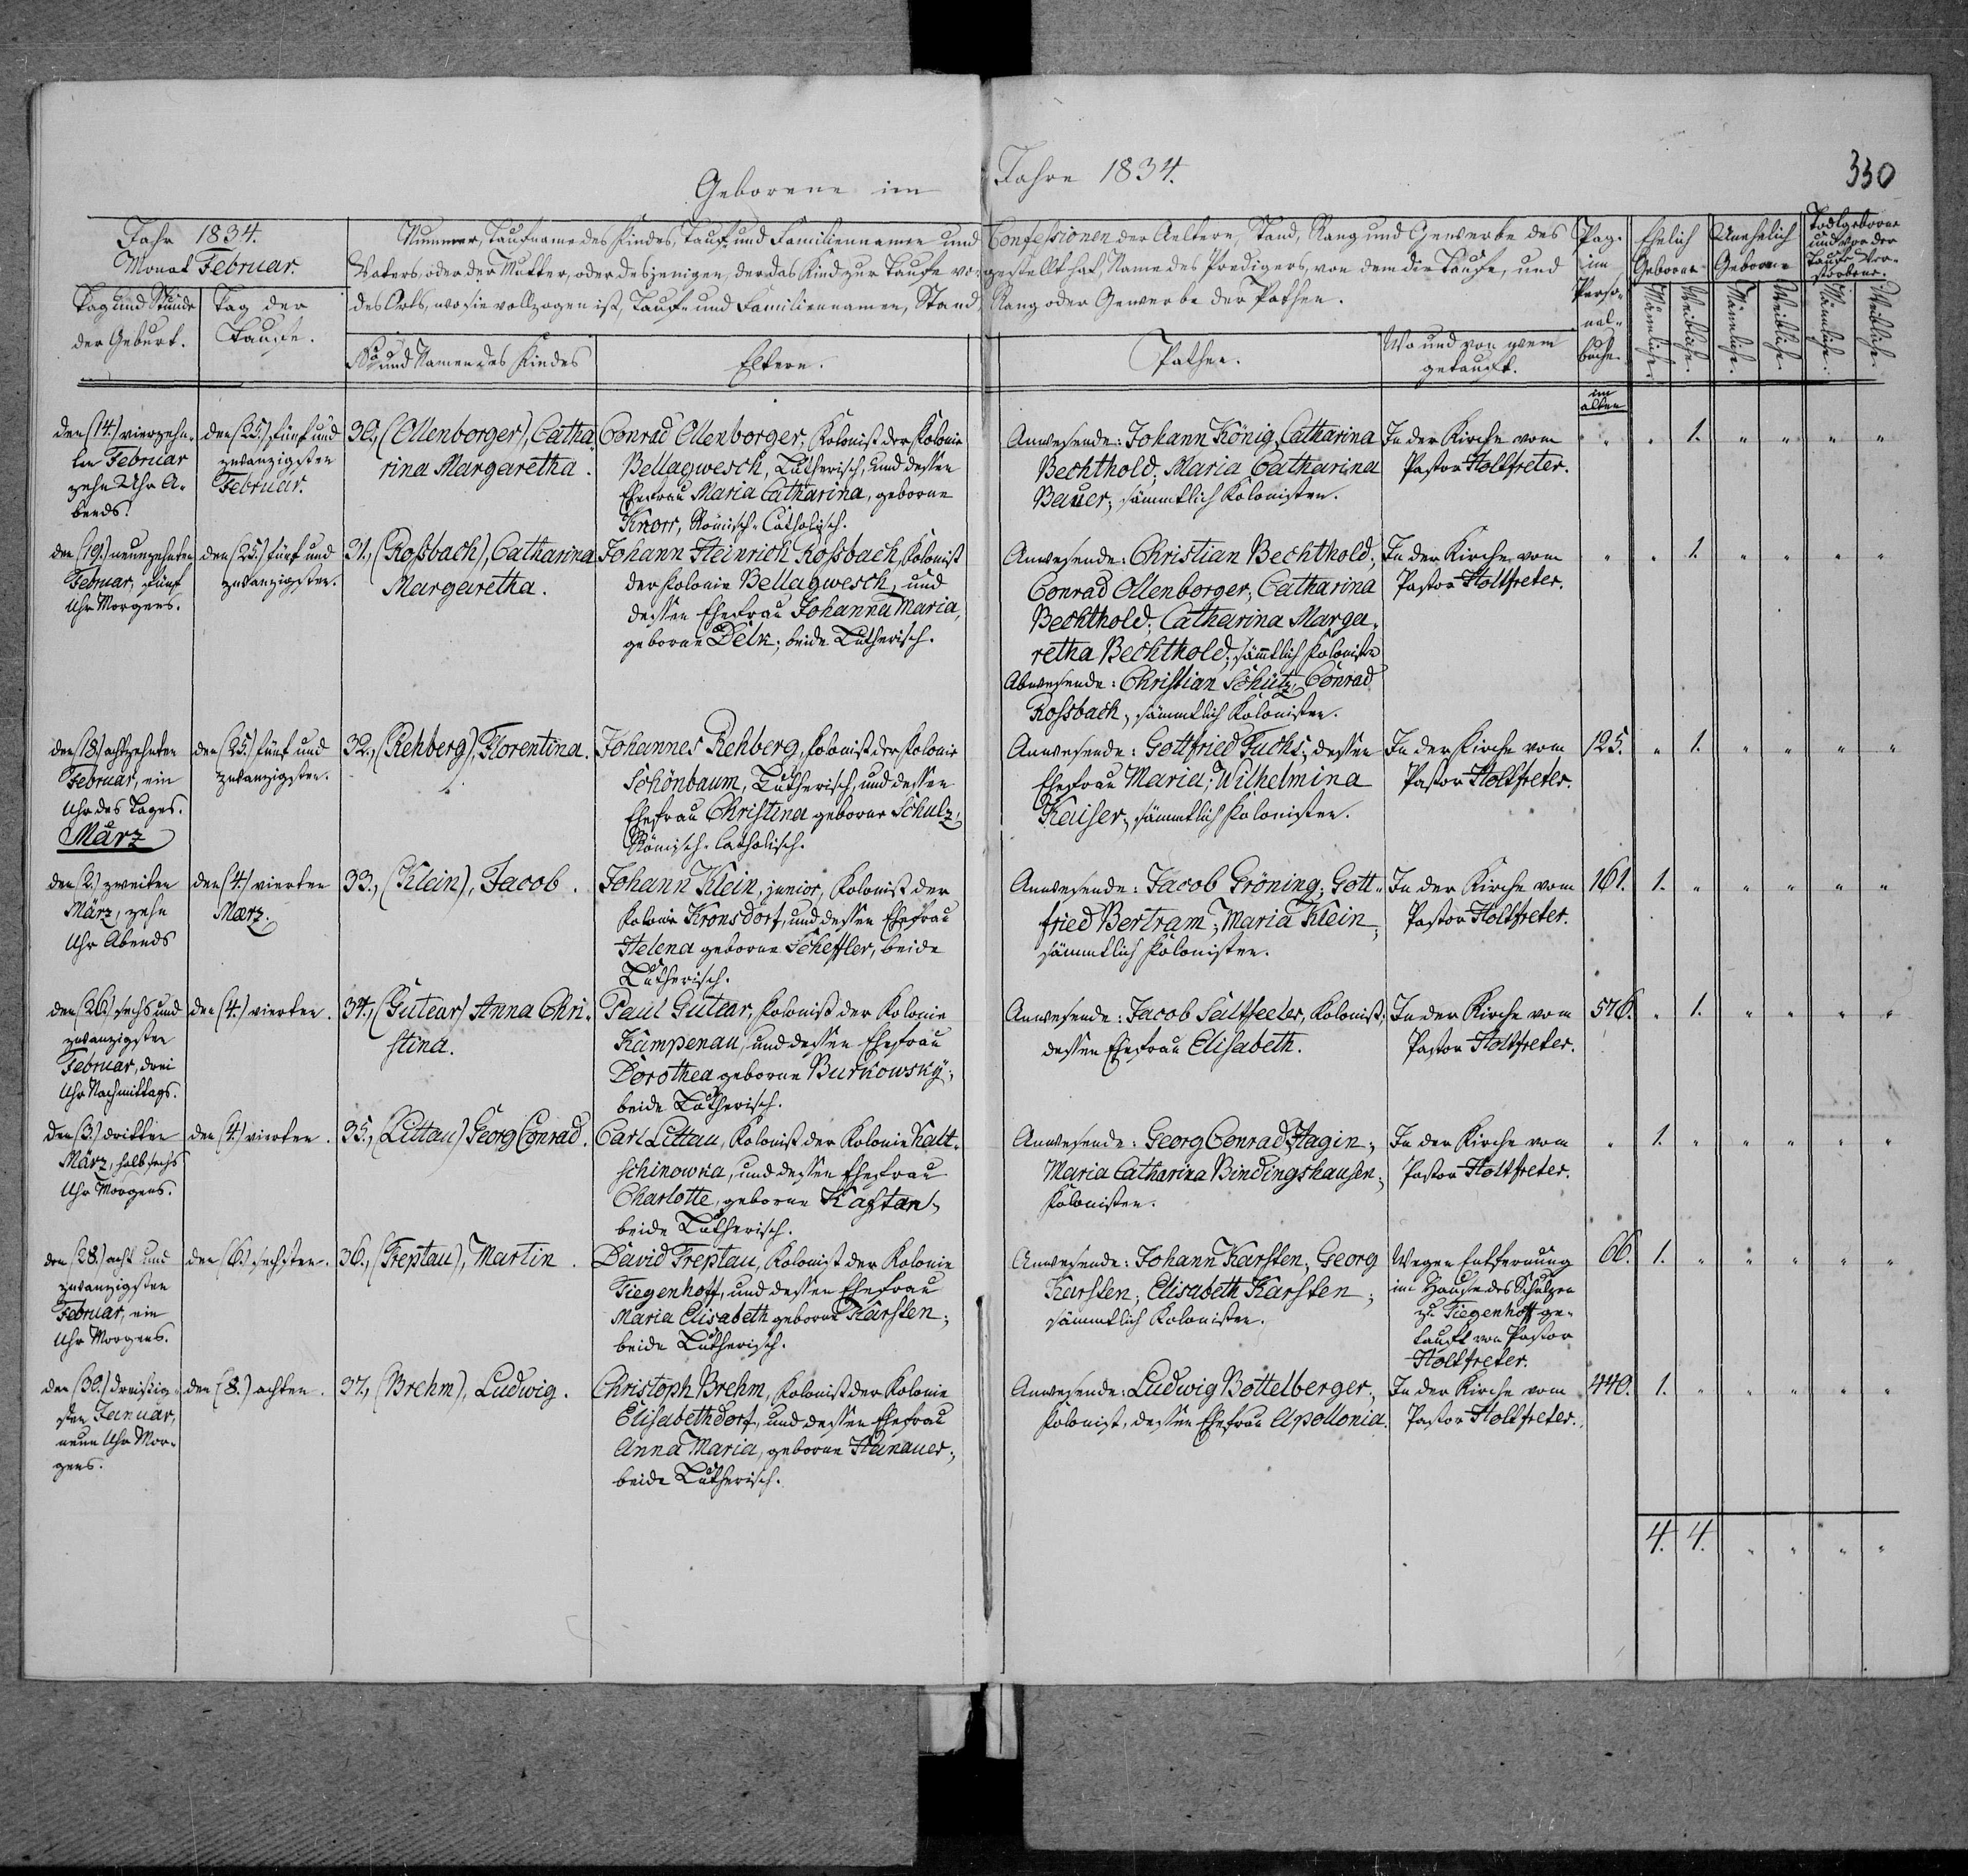 Geborene im Jahre 1834.
330
Jahr 1834.
Monat Februar.
Tag und Stunde
der Geburt.
Tag der
Taufe.
Nummer, Taufname des Kindes, Tauf- und Familiennamen und Confessionen der Aeltern, Stand, Rang und Gewerbe des
Vaters, oder der Mutter, oder desjenigen, der das Kind zur Taufe vorgestellt hat, Name des Predigers, von dem die Taufe, und
des Orts, wo sie vollzogen ist, Tauf- und Familiennamen, Stand, Rang oder Gewerbe der Pathen.
No und Namen des Kindes
Eltern.
Pathen.
Wo und von wem
getauft.
Pag.
im
Perso-
nal-
buche.
Ehelich
Geborne
Unehelich
Geborene
Todtgeborne
und vor der
Taufe Ver-
storbene.
Männliche.
Weibliche.
Männliche.
Weibliche.
Männliche.
Weibliche.
im
alten
den (14.) vierzehn-
ten Februar
zehn Uhr A-
bends.
den (25.) fünf und
zwanzigsten
Februar.
30., (Ollenborger), Catha-
rina Margaretha.
Conrad Ollenborger, Kolonist der Kolonie
Bellagwesch, Lutherisch, und dessen
Ehefrau Maria Catharina, geborne
Knorr, Römisch-Catholisch.
Anwesende: Johann König, Catharina
Bechthold; Maria Catharina
Bauer; sämmtlich Kolonisten.
In der Kirche vom
Pastor Holtfreter.
" " 1. " " " "
den (19.) neunzehnten
Februar, fünf
Uhr Morgens.
den (25.) fünf und
zwanzigsten.
31., (Roßbach), Catharina
Margaretha.
Johann Heinrich Roßbach, Kolonist
der Kolonie Bellagwesch, und
dessen Ehefrau Johanna Maria,
geborne Delk; beide Lutherisch.
Anwesende: Christian Bechthold;
Conrad Ollenborger; Catharina
Bechthold; Catharina Marga-
retha Bechthold; sämtlich Koloniste
Abwesende: Christian Schütz; Conrad
Roßbach; sämmtlich Kolonisten.
In der Kirche vom
Pastor Holtfreter.
" " 1. " " " "
den (18.) achtzehnten
Februar, ein
Uhr des Tages.
den (25.) fünf und
zwanzigsten.
32., (Rehberg), Florentina.
Johannes Rehberg, Kolonist der Kolonie
Schönbaum, Lutherisch, und dessen
Ehefrau Christina geborne Schulz,
Römisch-Catholisch.
Anwesende: Gottfried Fuchs; dessen
Ehefrau Maria; Wilhelmina
Kaiser; sämmtlich Kolonisten.
In der Kirche vom
Pastor Holtfreter.
125. " 1. " " " "
März
den (2.) zweiten
März, zehn
Uhr Abends
den (4.) vierten
Maerz.
33., (Klein), Jacob.
Johann Klein, junior, Kolonist der
Kolonie Kronsdorf, und dessen Ehefrau
Helena geborne Scheffler, beide
Lutherisch.
Anwesende: Jacob Gröning; Gott-
fried Bertram; Maria Klein;
sämmtlich Kolonisten.
In der Kirche vom
Pastor Holtfreter.
161. 1. " " " " "
den (26.) sechs und
zwanzigsten
Februar, drei
Uhr Nachmittags.
den (4.) vierten.
34., (Gutear) Anna Chri-
stina.
Paul Gutear, Kolonist der Kolonie
Kampenau, und dessen Ehefrau
Dorothea geborne Burkowsky;
beide Lutherisch.
Anwesende: Jacob Kolonist;
dessen Ehefrau Elisabeth.
In der Kirche vom
Pastor Holtfreter.
576. " 1. " " " "
den (3.) dritten
März, halb sechs
Uhr Morgens.
den (4.) vierten.
35., (Littau) Georg Conrad.
Carl Littau, Kolonist der Kolonie Kalt-
schinowka, und dessen Ehefrau
Charlotte, geborne Kaftan,
beide Lutherisch.
Anwesende: Georg Conrad Hagin;
Maria Catharina Bindingshausen;
Kolonisten.
In der Kirche vom
Pastor Holtfreter.
" 1. " " " " "
den (28.) acht und
zwanzigsten
Februar, ein
Uhr Morgens.
den (6.) sechsten.
36., (Treptau), Martin.
David Treptau, Kolonist der Kolonie
Tiegenhoff, und dessen Ehefrau
Maria Elisabeth geborne Karsten;
beide Lutherisch.
Anwesende: Johann Karsten; Georg
Karsten; Elisabeth Karsten;
sämmtlich Kolonisten.
Wegen Entfernung
im Hause des Schulzen
zu Tiegenhoff ge-
tauft von Pastor
Holtfreter.
66. 1. " " " " "
den (30.) dreißig-
sten Januar,
neun Uhr Mor-
gens.
den (8.) achten.
37., (Brehm), Ludwig.
Christoph Brehm, Kolonist der Kolonie
Elisabethdorf, und dessen Ehefrau
Anna Maria, geborne Hanauer;
beide Lutherisch.
Anwesende: Ludwig Bottelberger;
Kolonist, dessen Ehefrau Apollonia.
In der Kirche vom
Pastor Holtfreter.
440. 1. " " " " "
4. 4. " " " "